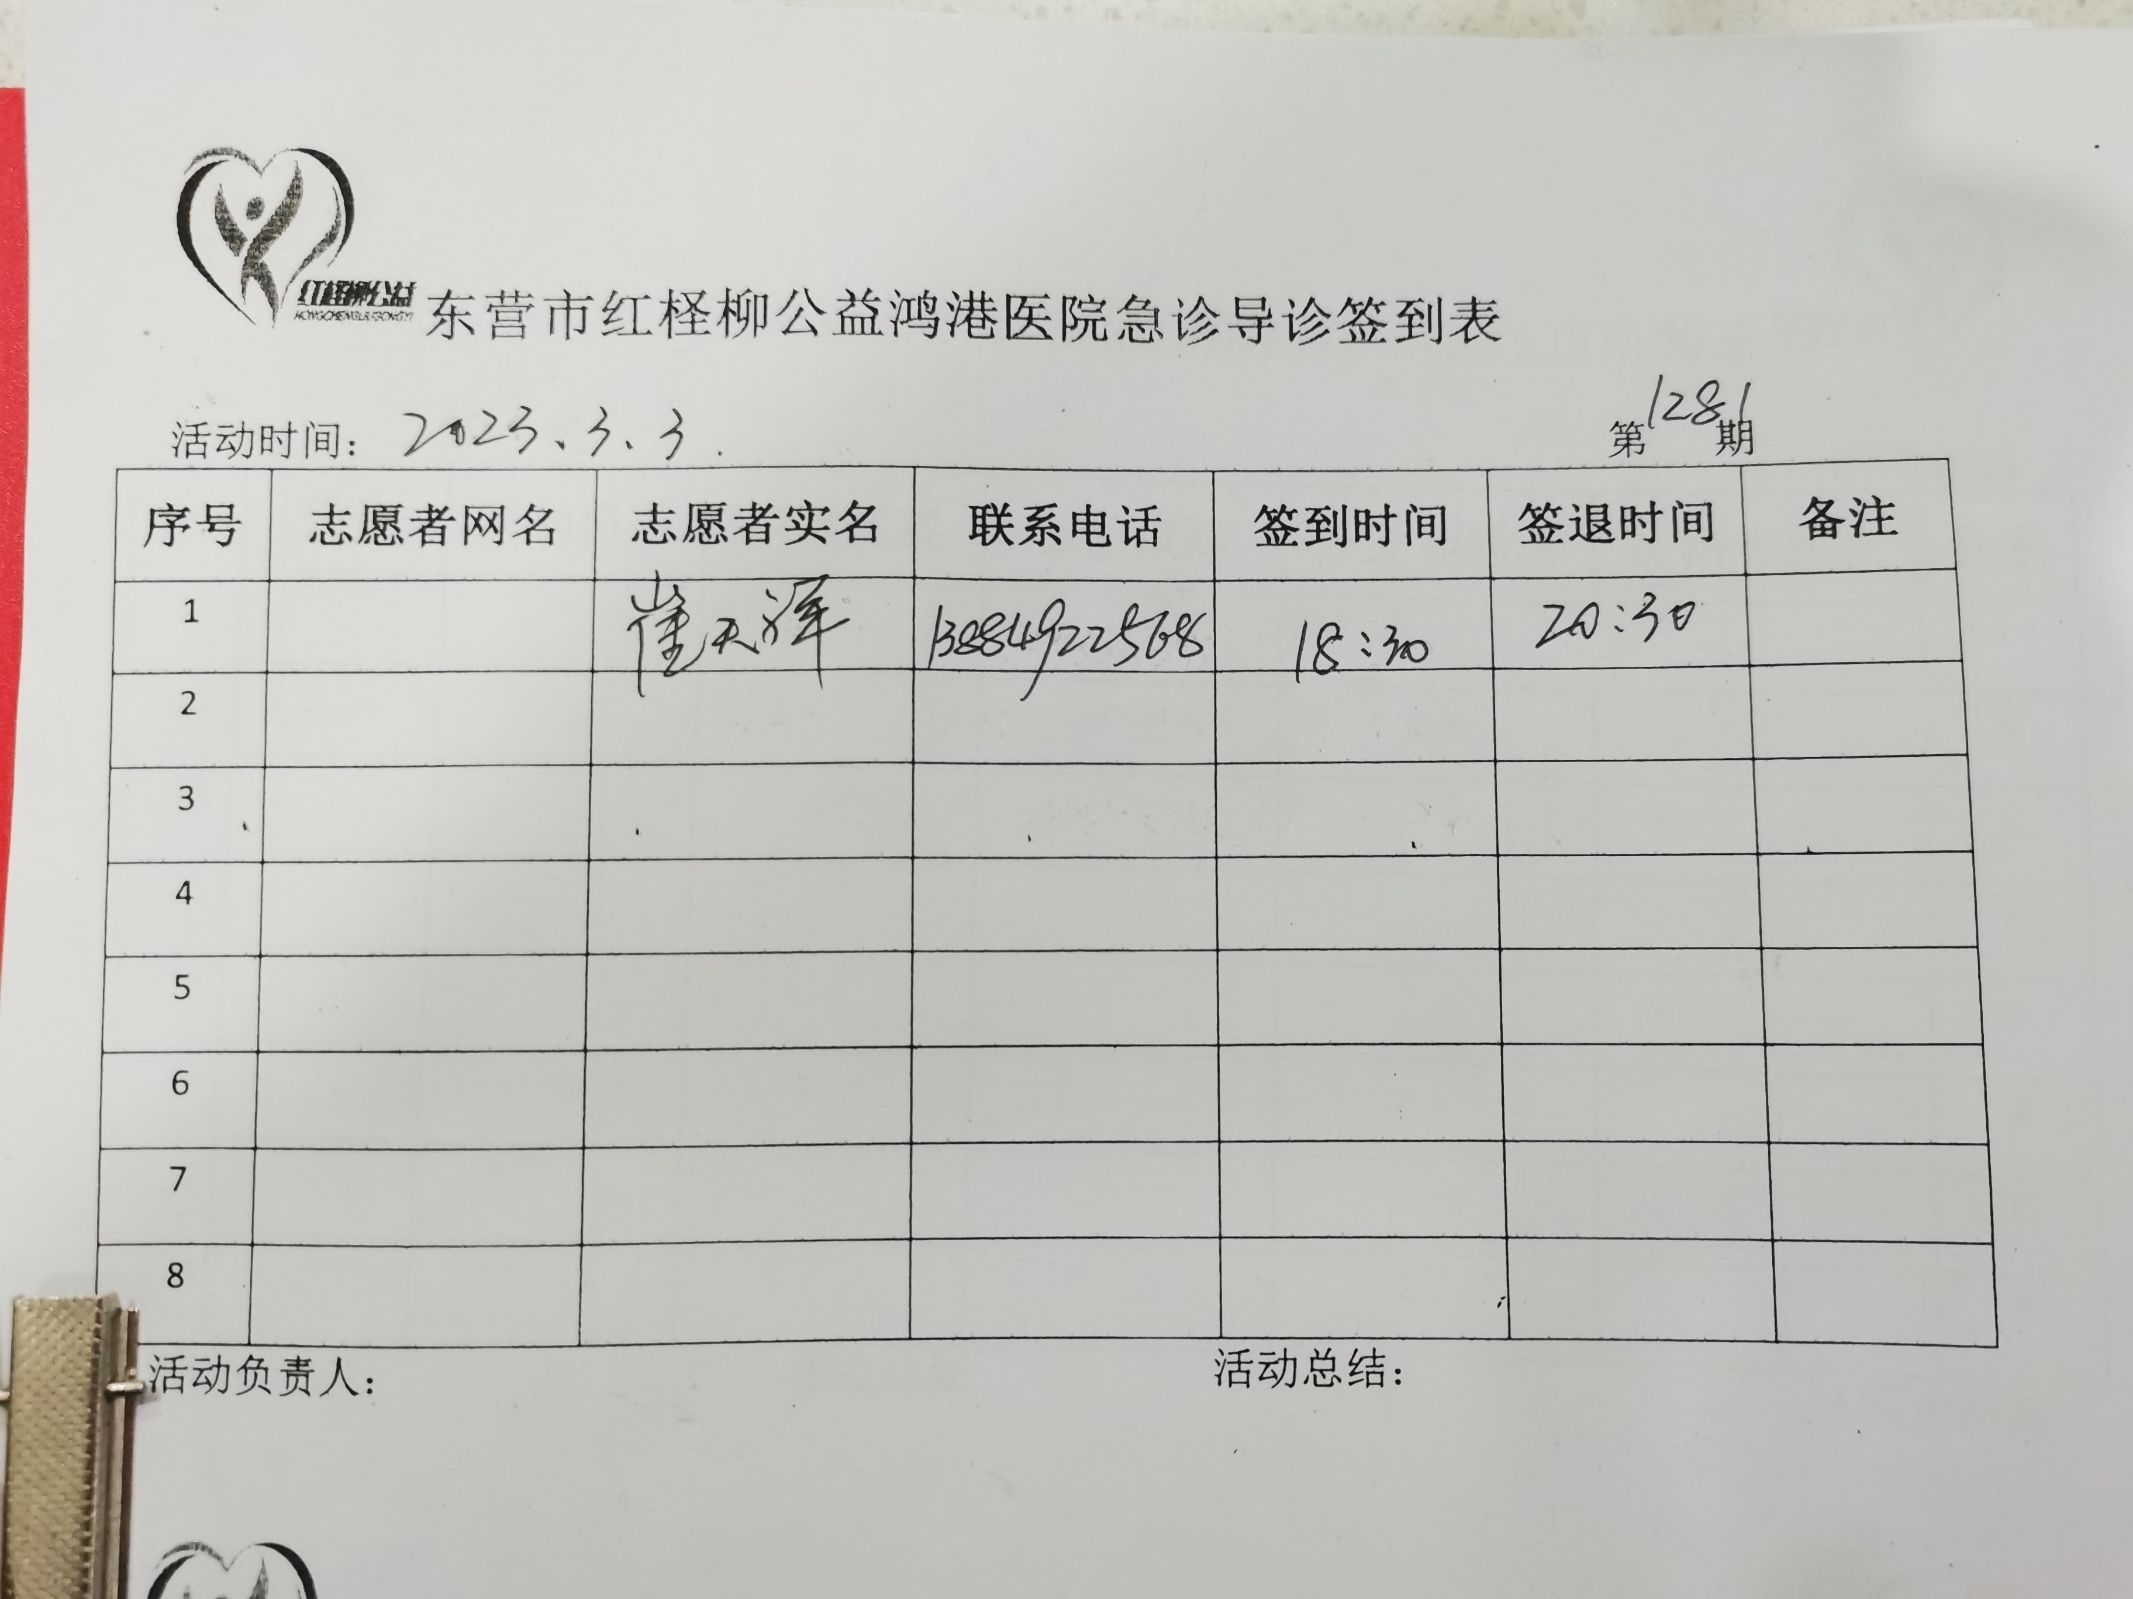 红柽柳公益
东营市红柽柳公益鸿港医院急诊导诊签到表
活动时间： 2023、3、3. 第1281期
序号 志愿者网名 志愿者实名 联系电话 签到时间 签退时间 备注
1 崔天泽 13884922568 18:30 20:30
2
3
4
5
6
7
8
活动负责人： 活动总结：